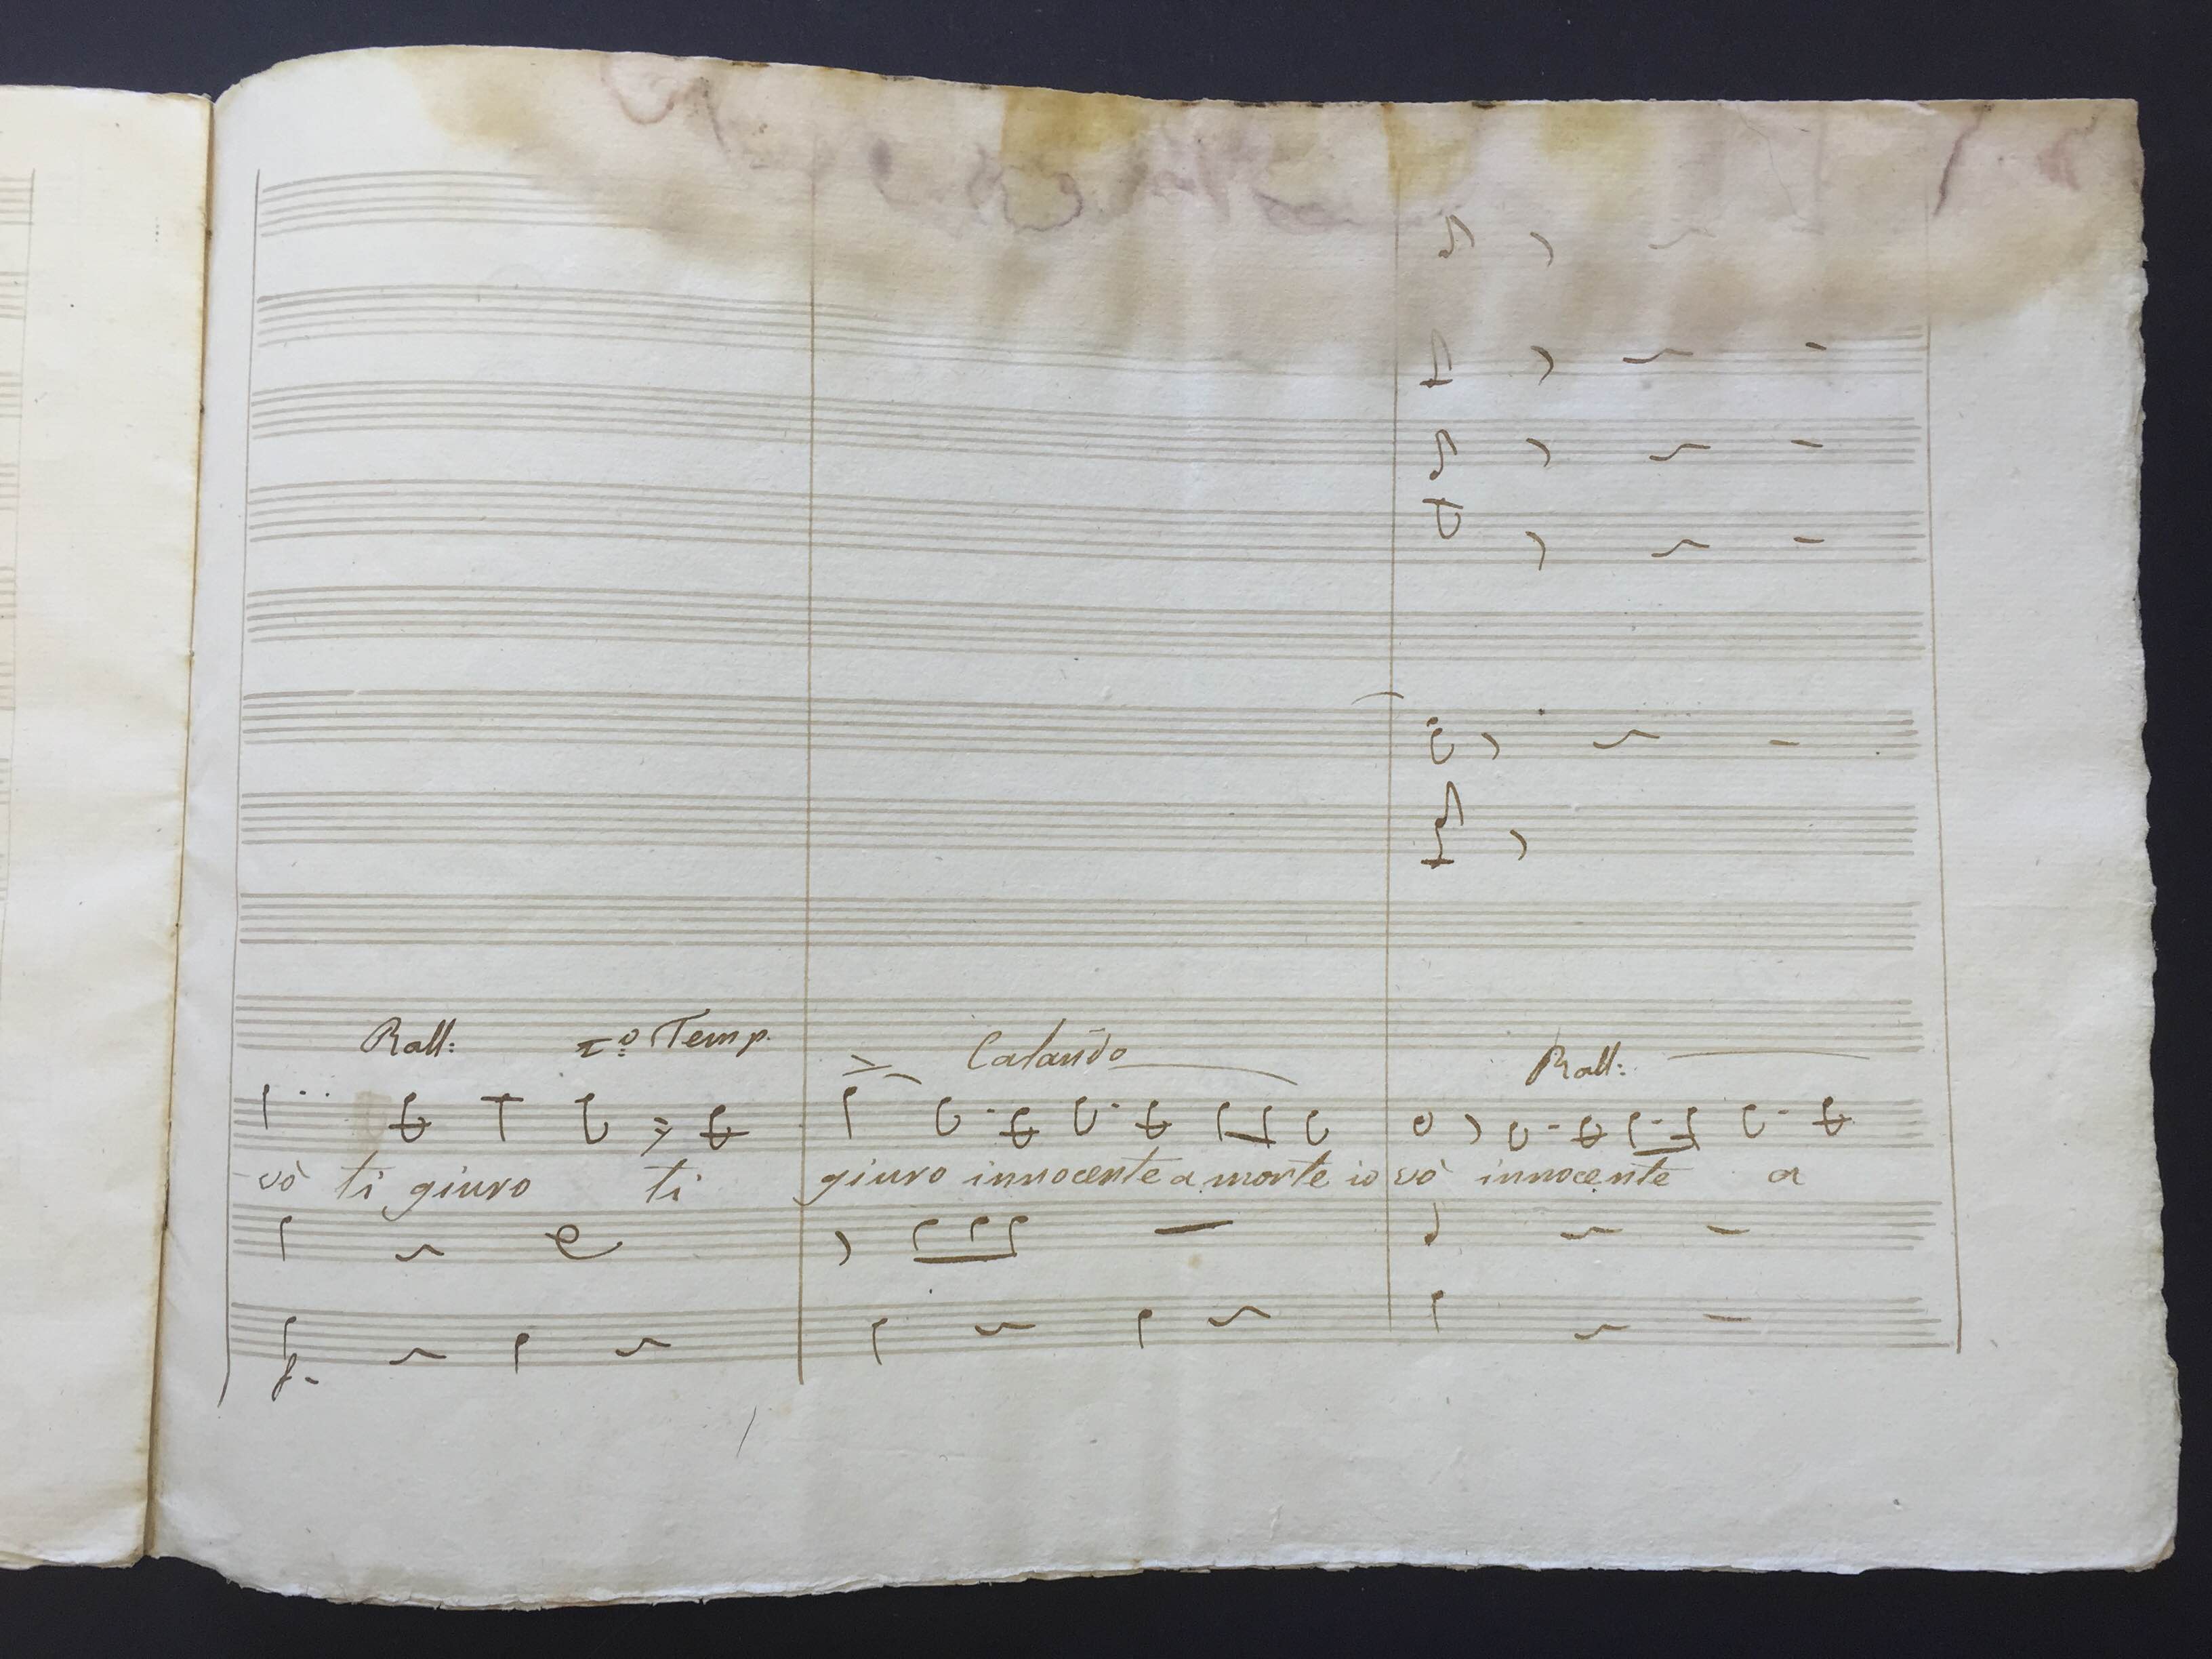 Rall: Iº Temp. Calando Rall:
vò ti giuro ti giuro innocente a morte io vò innocente a
f.